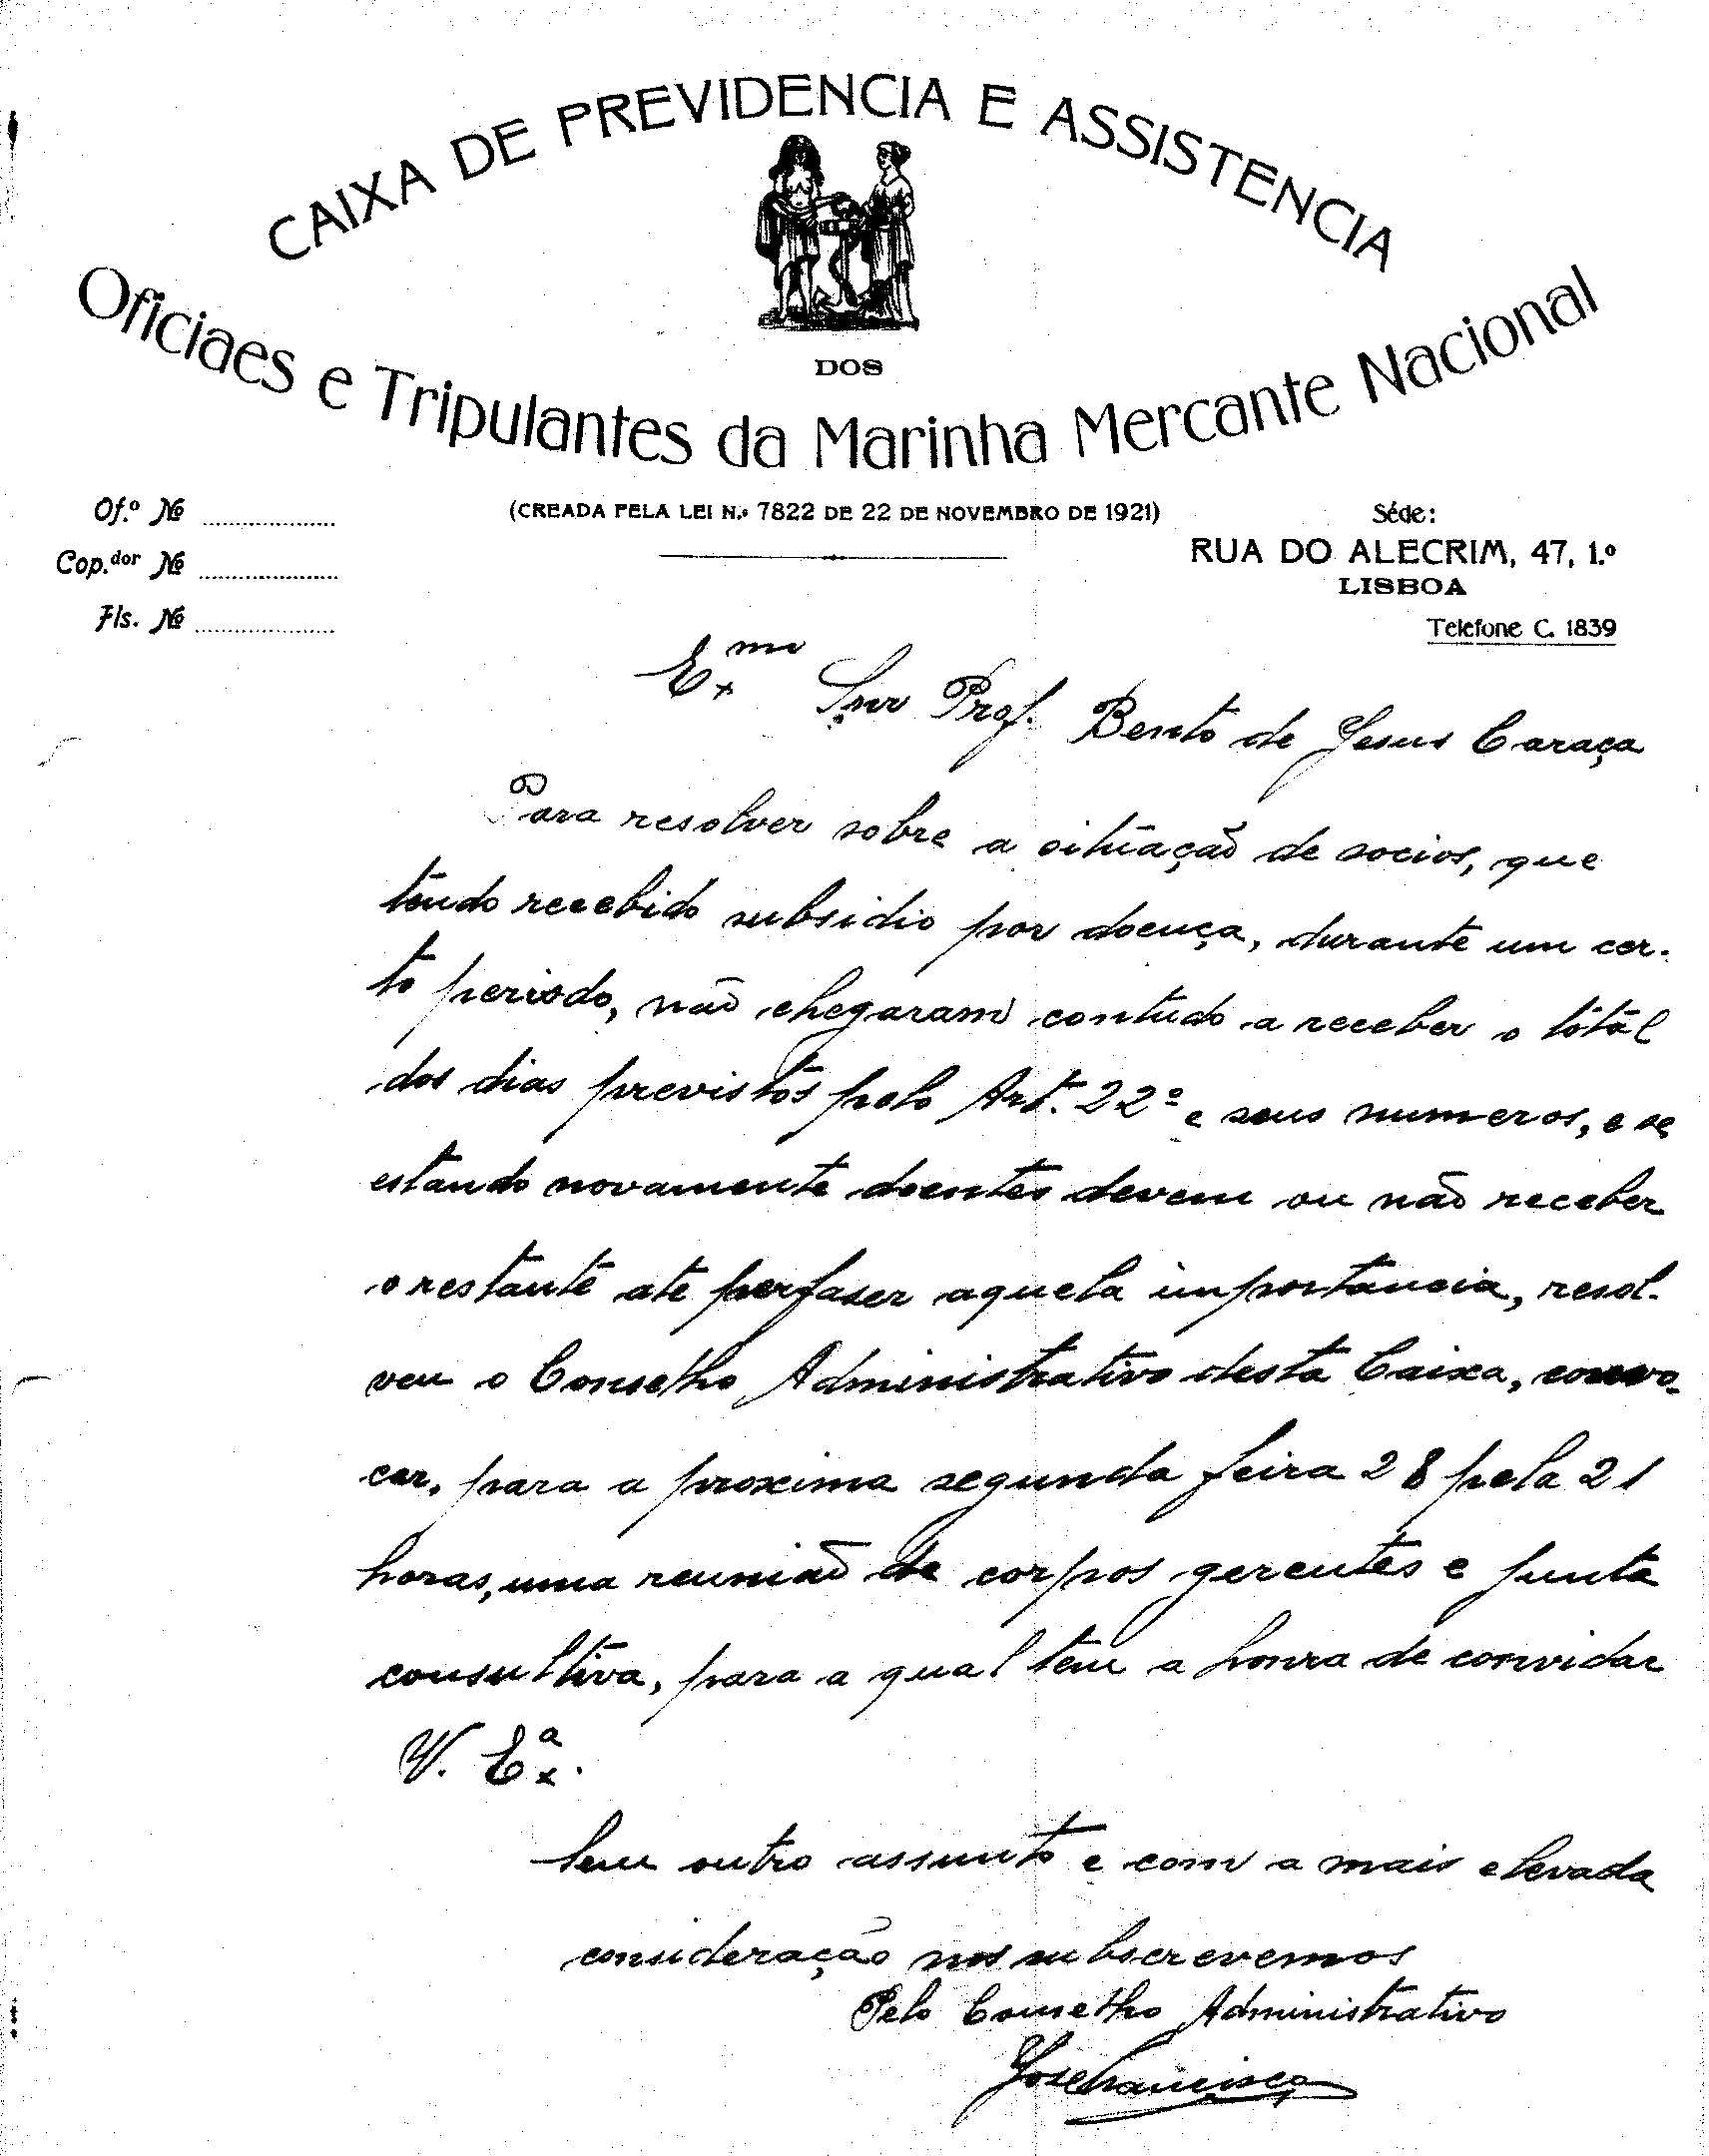 CAIXA DE PREVIDENCIA E ASSISTENCIA
DOS
Oficiaes e Tripulantes da Marinha Mercante Nacional
(CREADA PELA LEI N.º 7822 DE 22 DE NOVEMBRO DE 1921)
Of.º Nº
Cop.dor Nº
Fls. Nº
Séde:
RUA DO ALECRIM, 47, 1.º
LISBOA
Telefone C. 1839
Exmo Snr Prof. Bento de Jesus Caraça
Para resolver sobre a situação de socios, que
tendo recebido subsidio por doença, durante um cer-
to periodo, não chegaram contudo a receber o total
dos dias previstos pelo Art. 22º e seus numeros, e se
estando novamente doentes devem ou não receber
o restante até perfaser aquela importancia, resol-
veu o Conselho Administrativo desta Caixa, convo-
car, para a proxima segunda feira 28 pela 21
horas, uma reunião de corpos gerentes e junta
consultiva, para a qual tem a honra de convidar
V. Exª.
Sem outro assunto e com a mais elevada
consideração nos subscrevemos
Pelo Conselho Administrativo
José Francisco